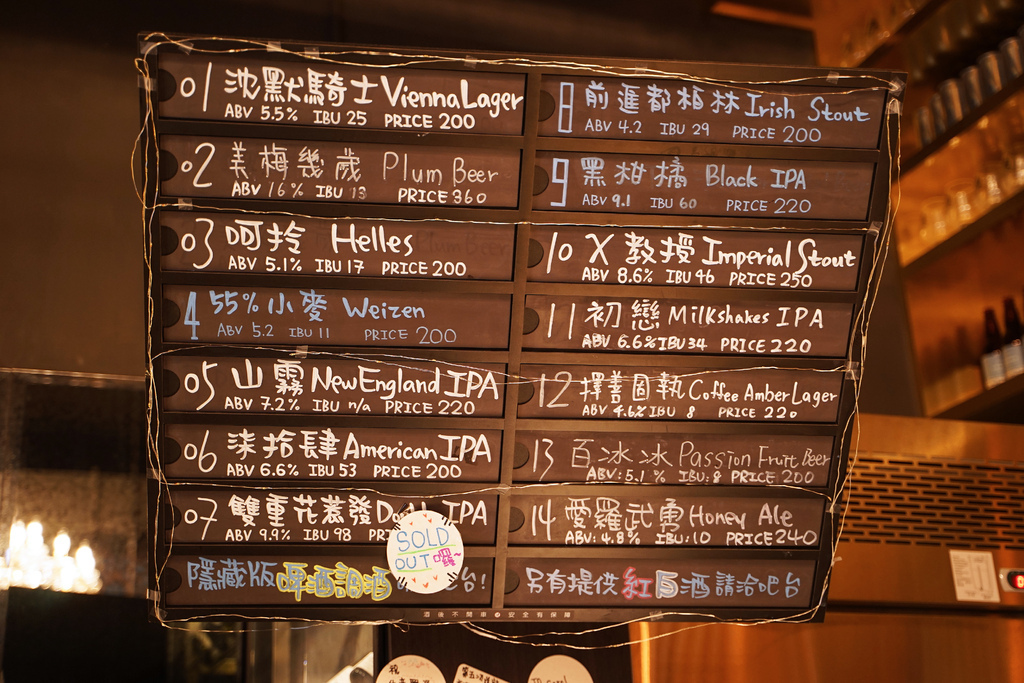 01 沈默騎士 Vienna Lager
ABV 5.5% IBU 25 PRICE 200
02 美梅幾歲 Plum Beer
ABV 16% IBU 13 PRICE 360
03 呵拎 Helles
ABV 5.1% IBU 17 PRICE 200
4 55%小麥 Weizen
ABV 5.2 IBU 11 PRICE 200
05 山霧 New England IPA
ABV 7.2% IBU n/a PRICE 220
06 柒拾肆 American IPA
ABV 6.6% IBU 53 PRICE 200
07 雙重花惹發 IPA
ABV 9.9% IBU 98 PRICE
SOLD
OUT囉~
隱藏版啤酒請洽 台!
8 前進都柏林 Irish Stout
ABV 4.2 IBU 29 PRICE 200
9 黑柑橘 Black IPA
ABV 9.1 IBU 60 PRICE 220
10 X 教授 Imperial Stout
ABV 8.6% IBU 46 PRICE 250
11 初戀 Milkshakes IPA
ABV 6.6% IBU 34 PRICE 220
12 擇善固執 Coffee Amber Lager
ABV 4.6% IBU 8 PRICE 220
13 百冰冰 Passion Fruit Beer
ABV: 5.1% IBU: 8 PRICE 200
14 愛羅武勇 Honey Ale
ABV: 4.8% IBU: 10 PRICE 240
另有提供紅白酒請洽吧台
酒後不開車 安全有保障